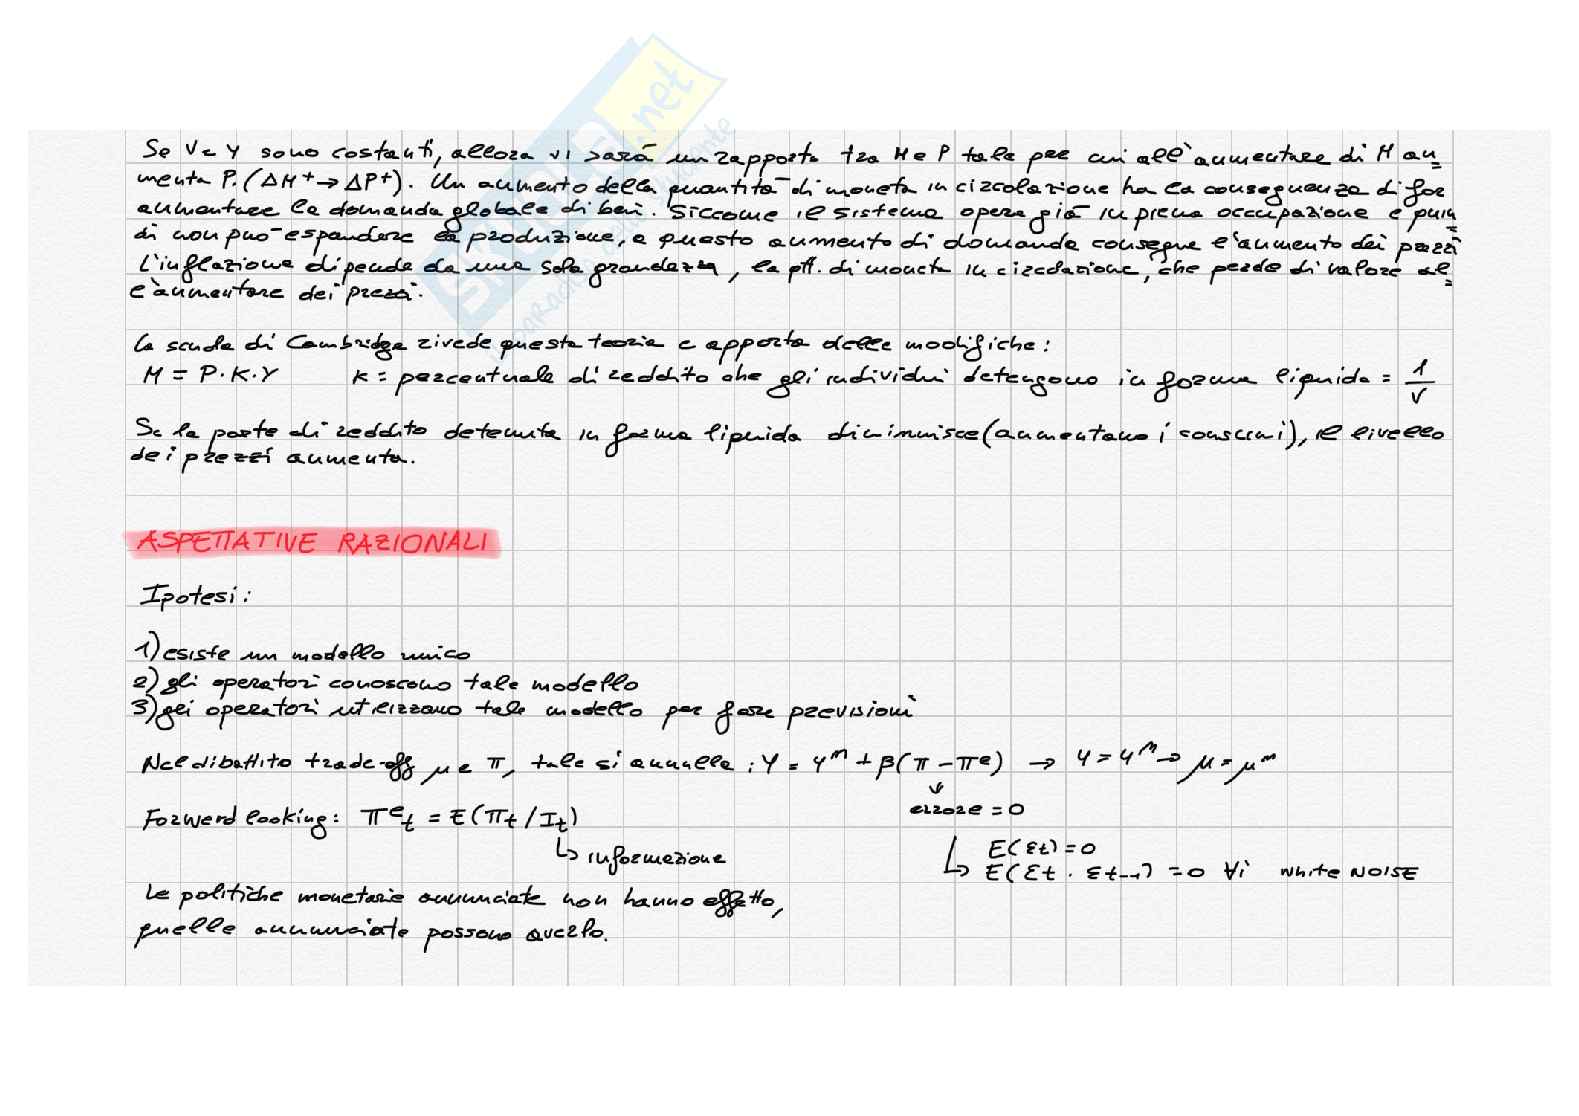 Se V e Y sono costanti, allora vi sarà un rapporto tra M e P tale per cui all'aumentare di M au
menta P. (ΔM⁺ → ΔP⁺). Un aumento della quantità di moneta in circolazione ha la conseguenza di far
aumentare la domanda globale di beni. Siccome il sistema opera già in piena occupazione e quin
di non può espandere la produzione, a questo aumento di domanda consegue l'aumento dei prezzi
L'inflazione dipende da una sola grandezza, la qtt. di moneta in circolazione, che perde di valore al
l'aumentare dei prezzi.
La scuola di Cambridge rivede questa teoria e apporta delle modifiche:
M = P·K·Y K = percentuale di reddito che gli individui detengono in forma liquida = 1/V
Se la parte di reddito detenuta in forma liquida diminuisce (aumentano i consumi), il livello
dei prezzi aumenta.
ASPETTATIVE RAZIONALI
Ipotesi:
1) esiste un modello unico
2) gli operatori conoscono tale modello
3) gli operatori utilizzano tale modello per fare previsioni
Nel dibattito trade-off μ e π, tale si annulla: Y = Yᵐ + β(π − πᵉ) → Y = Yᵐ → μ = μᵐ
errore = 0
Forward looking: πᵉt = E(πt / It)
informazione
E(εt) = 0
E(εt · εt-1) = 0 ∀i white NOISE
Le politiche monetarie annunciate non hanno effetto,
quelle annunciate possono averlo.
skuola.net